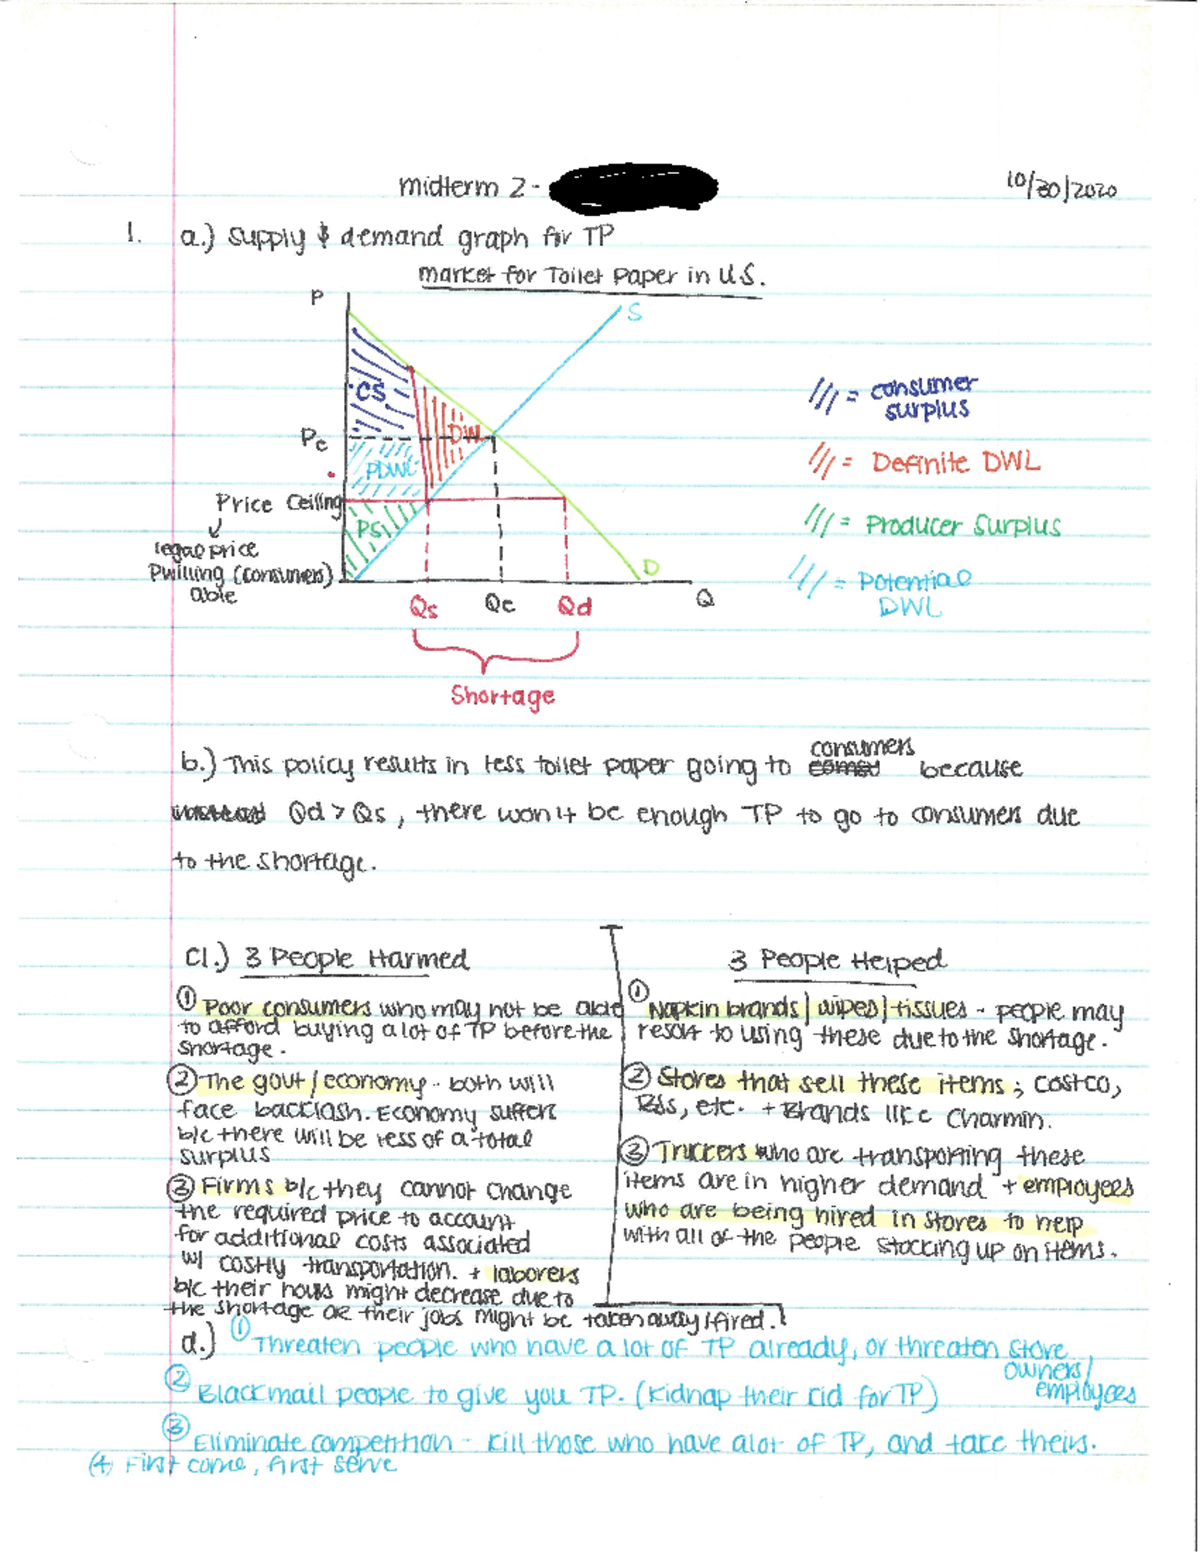 midterm 2 -
10/30/2020
1. a.) Supply & demand graph for TP
market for Toilet Paper in U.S.
P
S
CS
Pe
DWL
PDWL
Price Ceiling
PS
legal price
Pwilling (consumers)
able
D
Qs Qe Qd Q
Shortage
/// = consumer
surplus
/// = Definite DWL
/// = Producer Surplus
/// = Potential
DWL
b.) This policy results in less toilet paper going to consumers because
Qd > Qs, there won't be enough TP to go to consumers due
to the shortage.
C1.) 3 People Harmed
① Poor consumers who may not be able
to afford buying a lot of TP before the
shortage.
② The govt / economy - both will
face backlash. Economy suffers
b/c there will be less of a total
surplus
③ Firms b/c they cannot change
the required price to account
for additional costs associated
w/ costly transportation. + laborers
b/c their hours might decrease due to
the shortage or their jobs might be taken away / fired.
3 People Helped
① Napkin brands / wipes / tissues - people may
resort to using these due to the shortage.
② Stores that sell these items; costco,
etc. + Brands like Charmin.
③ Truckers who are transporting these
items are in higher demand + employees
who are being hired in stores to help
with all of the people stocking up on items.
d.) ① Threaten people who have a lot of TP already, or threaten store
owners/
employees
② Blackmail people to give you TP. (Kidnap their kid for TP)
③ Eliminate competition - kill those who have alot of TP, and take theirs.
(4) First come, first serve